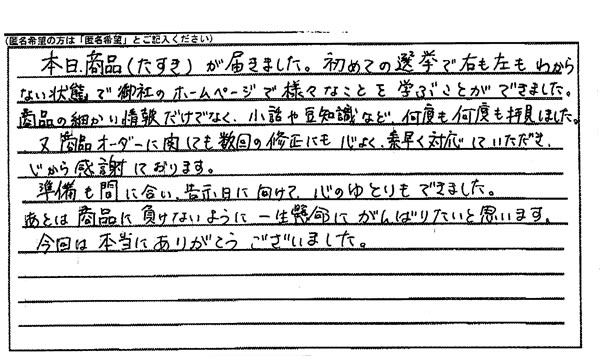 (匿名希望の方は「匿名希望」とご記入ください)
本日、商品(たすき)が届きました。初めての選挙で右も左もわから
ない状態で御社のホームページで様々なことを学ぶことができました。
商品の細かい情報だけでなく、小話や豆知識など、何度も何度も拝見しました。
又、商品オーダーに関しても数回の修正にも心よく、素早く対応していただき、
心から感謝しております。
準備も間に合い、告示日に向けて、心のゆとりもできました。
あとは商品に負けないように一生懸命にがんばりたいと思います。
今回は本当にありがとうございました。